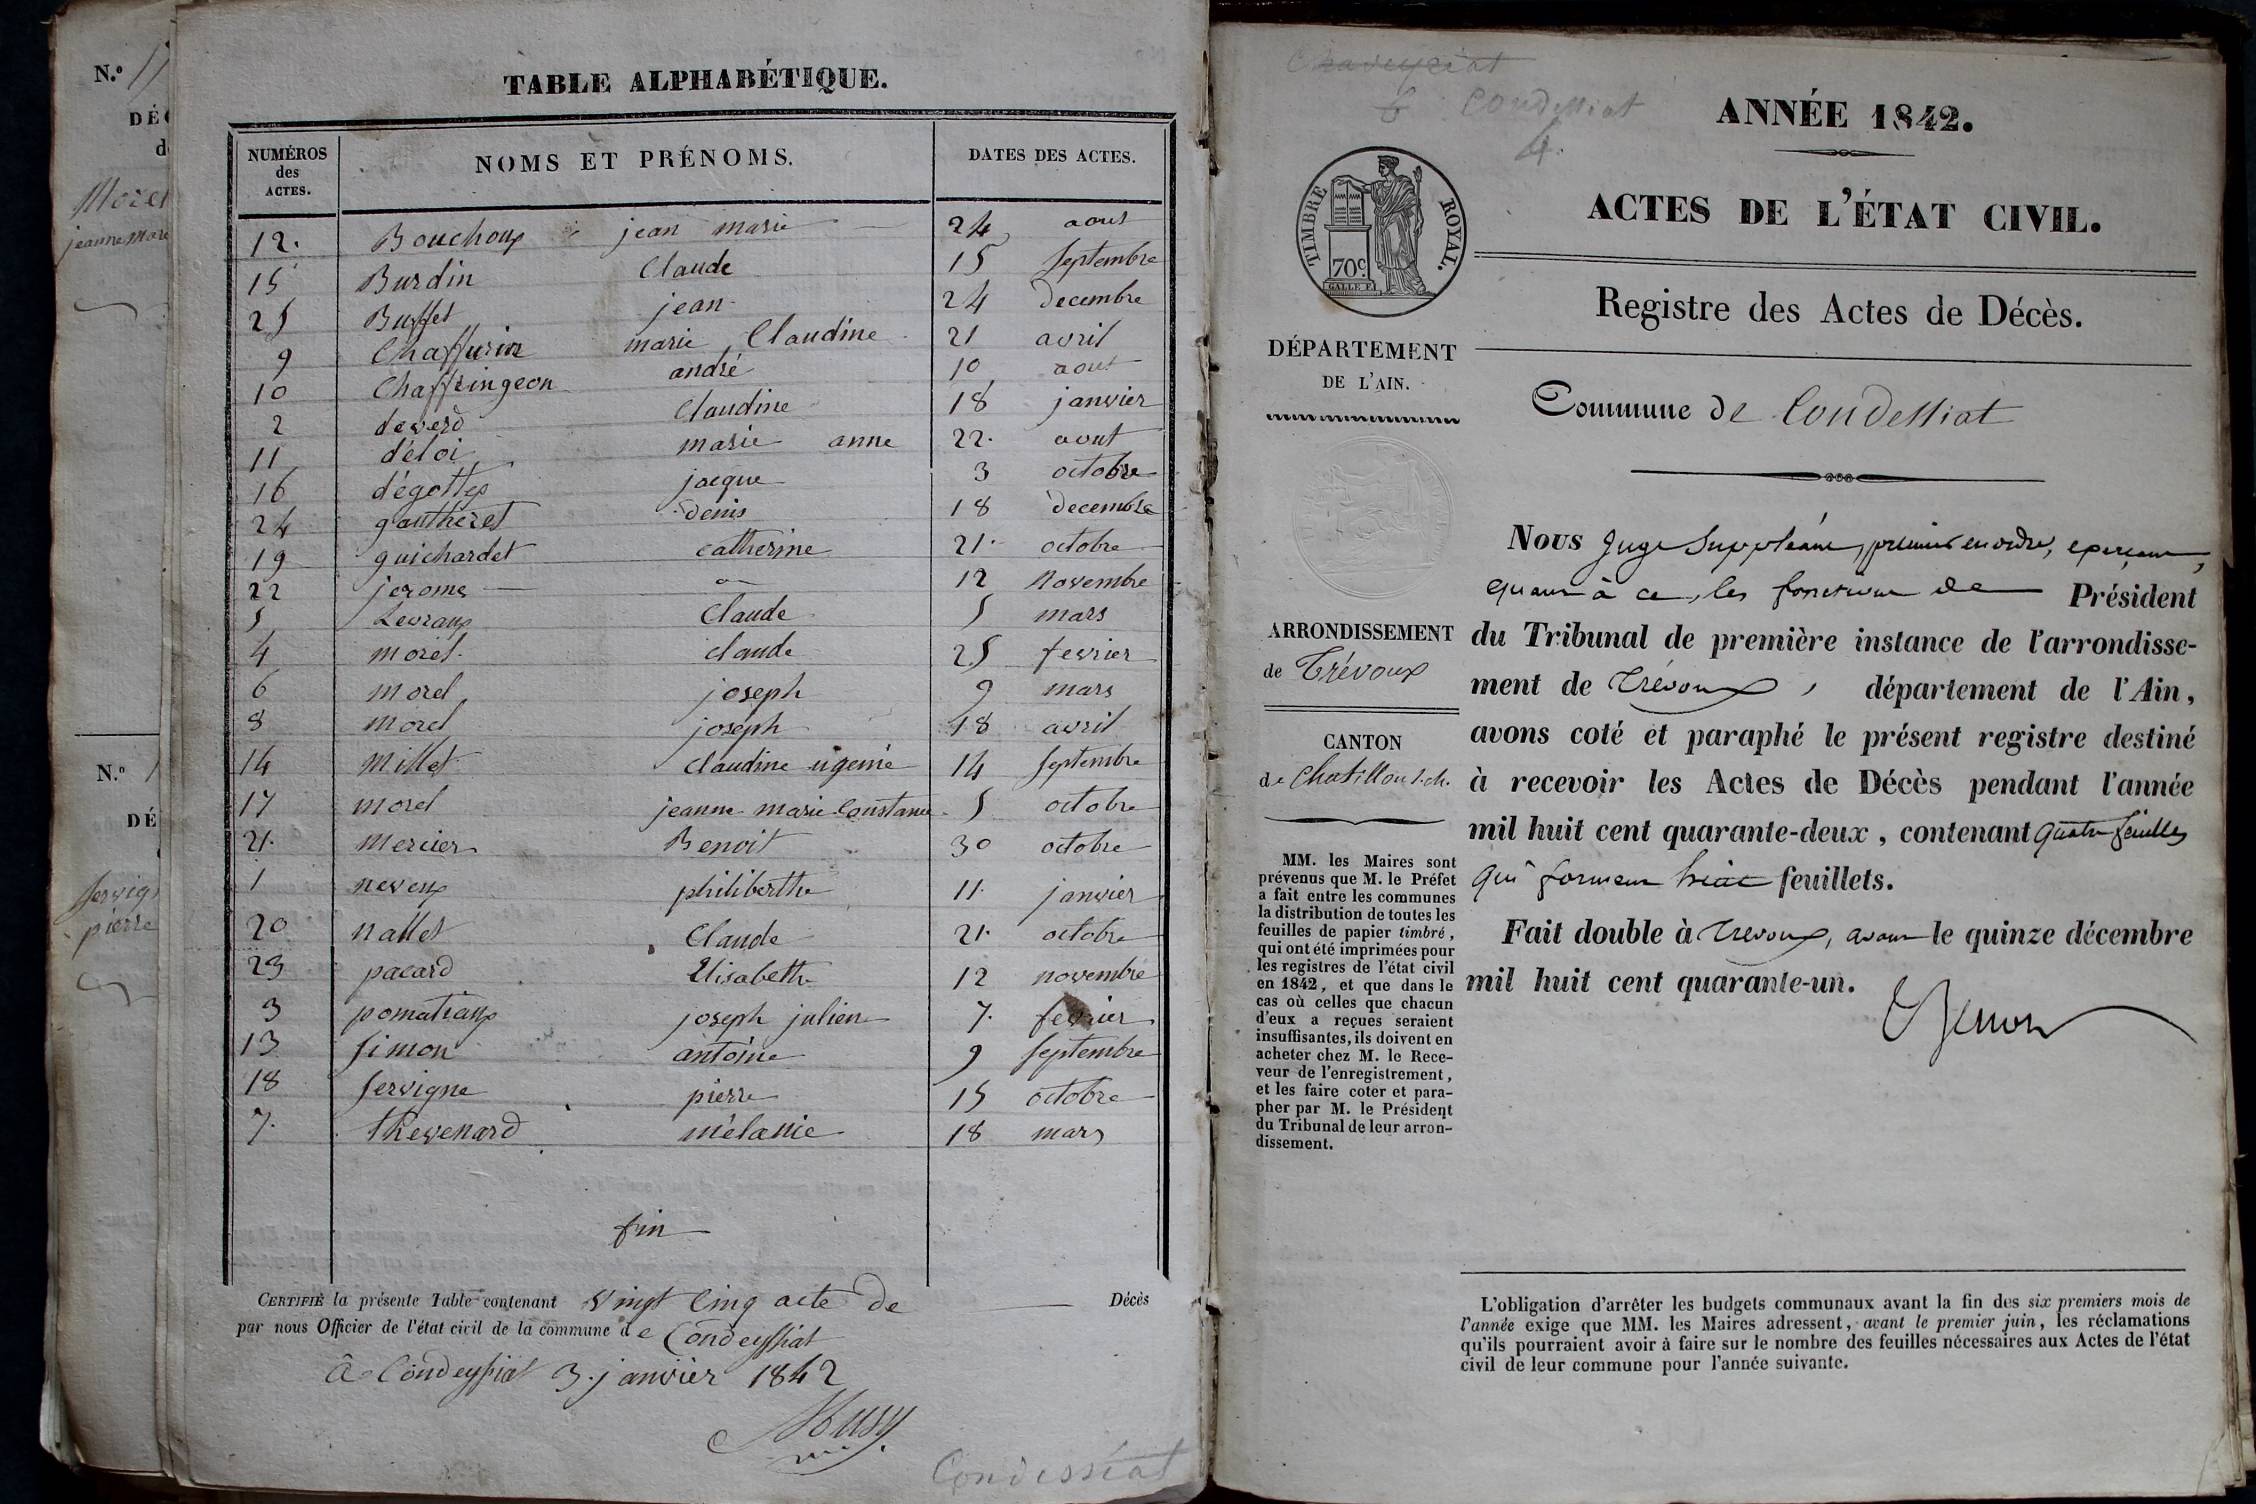 N.º 17
DÉC
d
Morel
jeanne Marie
N.º 1
DÉ
Servign
pierre
TABLE ALPHABÉTIQUE.
NUMÉROS des ACTES. NOMS ET PRÉNOMS. DATES DES ACTES.
12. Bouchoux jean marie 24 aout
15 Burdin Claude 15 Septembre
25 Buffet jean 24 decembre
9 Chaffurin marie Claudine 21 avril
10 Chaffringeon andré 10 aout
2 deverd Claudine 18 janvier
11 déloi marie anne 22. aout
16 dégottex jacque 3 octobre
24 gautheret denis 18 decembre
19 guichardet catherine 21. octobre
22 jerome 12 Novembre
5 Levraux Claude 5 mars
4 morel claude 25 fevrier
6 morel joseph 9 mars
8 morel joseph 18 avril
14 Millet Claudine ugenie 14 Septembre
17 morel jeanne marie Constance 5 octobre
21. Mercier Benoit 30 octobre
1 neveux philiberthe 11. janvier
20 nallet Claude 21. octobre
23 pacard Elisabeth 12 novembre
3 pomatiaux joseph julien 7. fevrier
13 Simon antoine 9 Septembre
18 Servigne pierre 15 octobre
7. thevenard mélanie 18 mars
fin
CERTIFIÉ la présente Table contenant vingt cinq acte de Décès
par nous Officier de l'état civil de la commune de Condeyssiat
A Condeyssiat 3. janvier 1842
Condessiat
Chaveyriat
6 Condessiat
4.
ANNÉE 1842.
ACTES DE L'ÉTAT CIVIL.
TIMBRE ROYAL.
70c.
GALLE F.
Registre des Actes de Décès.
DÉPARTEMENT
DE L'AIN.
Commune de Condessiat
Nous Juge Suppléant, premier en ordre, exerçant,
quant à ce, les fonctions de Président
du Tribunal de première instance de l'arrondisse-
ment de Trévoux, département de l'Ain,
avons coté et paraphé le présent registre destiné
à recevoir les Actes de Décès pendant l'année
mil huit cent quarante-deux, contenant quatre feuilles
qui forment huit feuillets.
Fait double à Trevoux, avant le quinze décembre
mil huit cent quarante-un.
ARRONDISSEMENT
de Trévoux
CANTON
de Chatillon s. ch.
MM. les Maires sont
prévenus que M. le Préfet
a fait entre les communes
la distribution de toutes les
feuilles de papier timbré,
qui ont été imprimées pour
les registres de l'état civil
en 1842, et que dans le
cas où celles que chacun
d'eux a reçues seraient
insuffisantes, ils doivent en
acheter chez M. le Rece-
veur de l'enregistrement,
et les faire coter et para-
pher par M. le Président
du Tribunal de leur arron-
dissement.
L'obligation d'arrêter les budgets communaux avant la fin des six premiers mois de
l'année exige que MM. les Maires adressent, avant le premier juin, les réclamations
qu'ils pourraient avoir à faire sur le nombre des feuilles nécessaires aux Actes de l'état
civil de leur commune pour l'année suivante.